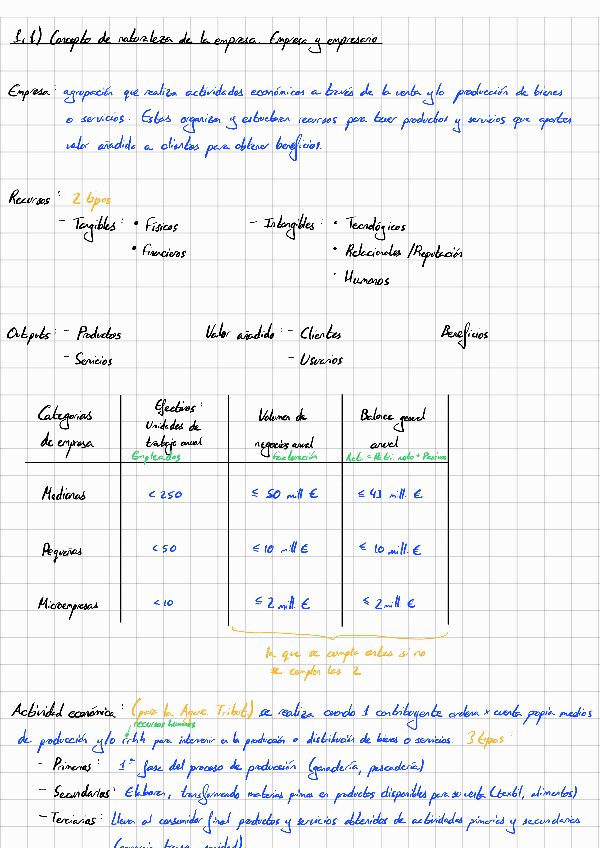 1.1) Concepto de naturaleza de la empresa. Empresa y empresario
Empresa: agrupación que realiza actividades económicas a través de la venta y/o producción de bienes
o servicios. Estas organizan y estructuran recursos para tener productos y servicios que aportes
valor añadido a clientes para obtener beneficios.
Recursos: 2 tipos
- Tangibles: • Físicos - Intangibles: • Tecnológicos
• Financieros • Relacionales / Reputación
• Humanos
Outputs: - Productos Valor añadido: - Clientes Beneficios
- Servicios - Usuarios
Categorías Efectivos: Volumen de Balance general
de empresa Unidades de negocios anual anual
trabajo anual Facturación Act. = Patri. neto + Pasivos
Empleados
Medianas < 250 ≤ 50 mill € ≤ 43 mill. €
Pequeñas < 50 ≤ 10 mill € ≤ 10 mill. €
Microempresas < 10 ≤ 2 mill. € ≤ 2 mill. €
la que se cumpla antes si no
se cumplen las 2
Actividad económica: (para la Agenc. Tribut.) se realiza cuando 1 contribuyente ordena x cuenta propia medios
recursos humanos
de producción y/o rrhh para intervenir en la producción o distribución de bienes o servicios. 3 tipos:
- Primarias: 1ª fase del proceso de producción (ganadería, pescadería)
- Secundarias: Elaboran, transformando materias primas en productos disponibles para su venta (textil, alimentos)
- Terciarias: Lleva al consumidor final productos y servicios obtenidos de actividades primarias y secundarias